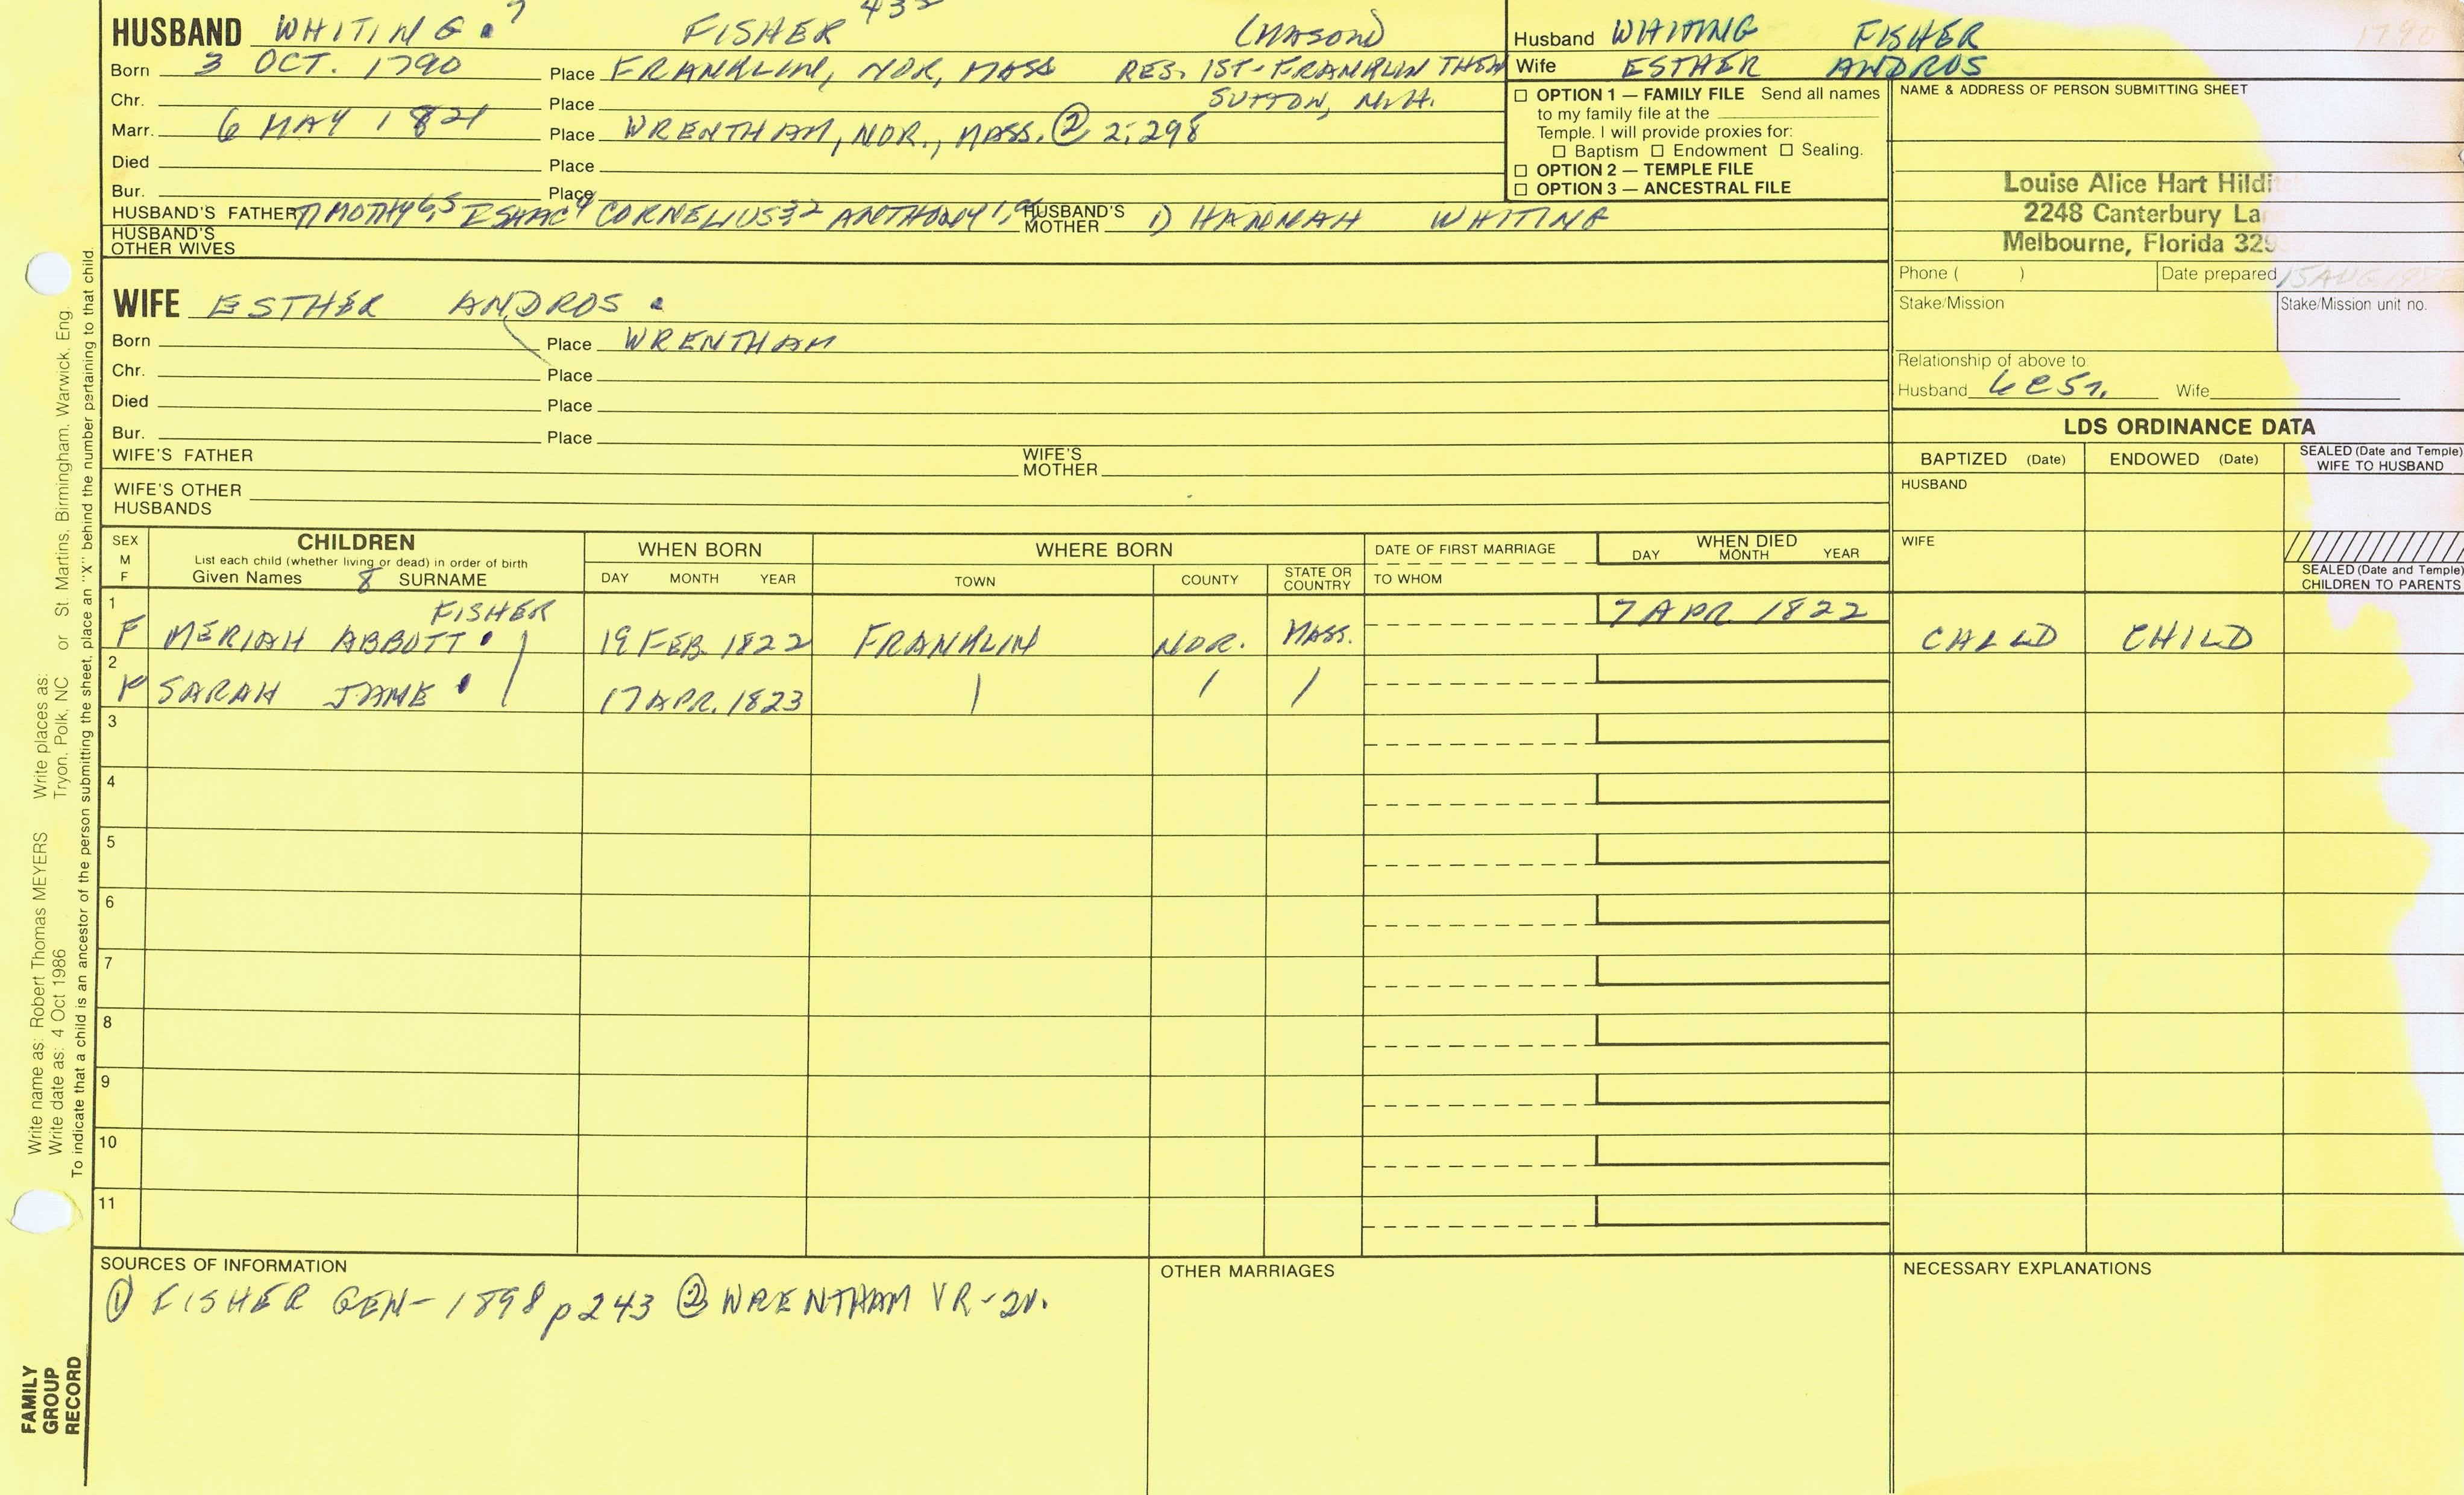 HUSBAND WHITING. 7 FISHER (MASON)
Born 3 OCT. 1790 Place FRANKLIN, NOR, MASS RES. 1ST-FRANKLIN THEN
Chr. Place SUTTON, N.H.
Marr. 6 MAY 1821 Place WRENTHAM, NOR., MASS. ② 2:298
Died Place
Bur. Place
HUSBAND'S FATHER TIMOTHY 6,5 ISAAC 4 CORNELIUS 3,2 ANTHONY 1, HUSBAND'S MOTHER 1) HANNAH WHITING
HUSBAND'S OTHER WIVES
Husband WHITING FISHER
Wife ESTHER ANDROS
☐ OPTION 1 — FAMILY FILE Send all names
to my family file at the
Temple. I will provide proxies for:
☐ Baptism ☐ Endowment ☐ Sealing.
☐ OPTION 2 — TEMPLE FILE
☐ OPTION 3 — ANCESTRAL FILE
NAME & ADDRESS OF PERSON SUBMITTING SHEET
Louise Alice Hart Hildi
2248 Canterbury La
Melbourne, Florida 329
Phone ( ) Date prepared 15 AUG
Stake/Mission Stake/Mission unit no.
Relationship of above to:
Husband Wife
WIFE ESTHER ANDROS.
Born Place WRENTHAM
Chr. Place
Died Place
Bur. Place
WIFE'S FATHER WIFE'S MOTHER
WIFE'S OTHER HUSBANDS
LDS ORDINANCE DATA
BAPTIZED (Date) ENDOWED (Date) SEALED (Date and Temple) WIFE TO HUSBAND
HUSBAND
WIFE
SEALED (Date and Temple) CHILDREN TO PARENTS
SEX M F CHILDREN WHEN BORN WHERE BORN DATE OF FIRST MARRIAGE WHEN DIED
List each child (whether living or dead) in order of birth
Given Names 8 SURNAME DAY MONTH YEAR TOWN COUNTY STATE OR COUNTRY TO WHOM DAY MONTH YEAR
1 FISHER 7 APR 1822
F MERIAH ABBOTT. 19 FEB. 1822 FRANKLIN NOR. MASS. CHILD CHILD
2
F SARAH JANE. 17 APR. 1823
3
4
5
6
7
8
9
10
11
SOURCES OF INFORMATION OTHER MARRIAGES NECESSARY EXPLANATIONS
① FISHER GEN-1898 p243 ② WRENTHAM VR-2V.
Write name as: Robert Thomas MEYERS Write places as: St. Martins, Birmingham, Warwick, Eng.
Write date as: 4 Oct 1986 Tryon, Polk, NC or
To indicate that a child is an ancestor of the person submitting the sheet, place an "X" behind the number pertaining to that child.
FAMILY
GROUP
RECORD